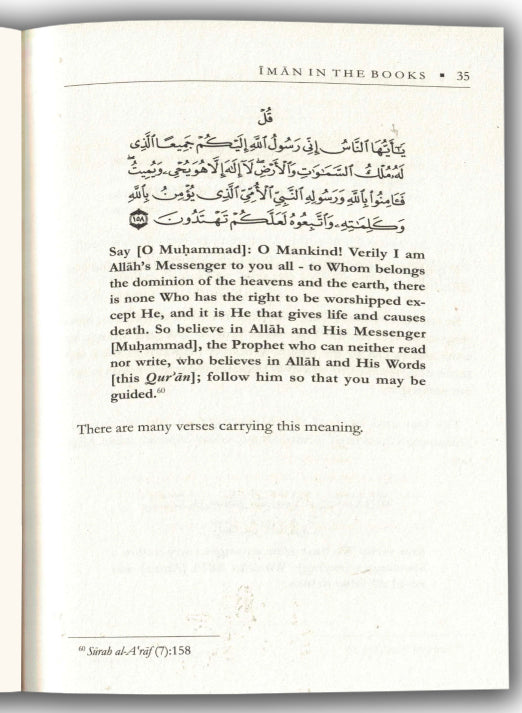 ĪMĀN IN THE BOOKS ▪ 35
قُلْ
يَٰٓأَيُّهَا ٱلنَّاسُ إِنِّى رَسُولُ ٱللَّهِ إِلَيْكُمْ جَمِيعًا ٱلَّذِى
لَهُۥ مُلْكُ ٱلسَّمَٰوَٰتِ وَٱلْأَرْضِ ۖ لَآ إِلَٰهَ إِلَّا هُوَ يُحْىِۦ وَيُمِيتُ ۖ
فَـَٔامِنُوا۟ بِٱللَّهِ وَرَسُولِهِ ٱلنَّبِىِّ ٱلْأُمِّىِّ ٱلَّذِى يُؤْمِنُ بِٱللَّهِ
وَكَلِمَٰتِهِۦ وَٱتَّبِعُوهُ لَعَلَّكُمْ تَهْتَدُونَ ١٥٨
Say [O Muḥammad]: O Mankind! Verily I am
Allāh's Messenger to you all - to Whom belongs
the dominion of the heavens and the earth, there
is none Who has the right to be worshipped ex-
cept He, and it is He that gives life and causes
death. So believe in Allāh and His Messenger
[Muḥammad], the Prophet who can neither read
nor write, who believes in Allāh and His Words
[this Qur'ān]; follow him so that you may be
guided.⁶⁰
There are many verses carrying this meaning.
⁶⁰ Sūrah al-A'rāf (7):158